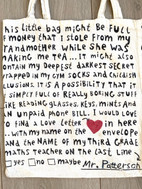 this little bag might be full
of money that I stole from my
grandmother while she was
making me tea... It might also
contain my deepest darkest secret
wrapped in my gym socks and childish
illusions. It is a possibility that it
is simply full of really boring stuff
like reading glasses, keys, mints and
an unpaid phone bill. I would love
to find a love letter in here
.. with my name on the envelope
and the name of my third grade
maths teacher on the last line.
yes no maybe Mr. Patterson